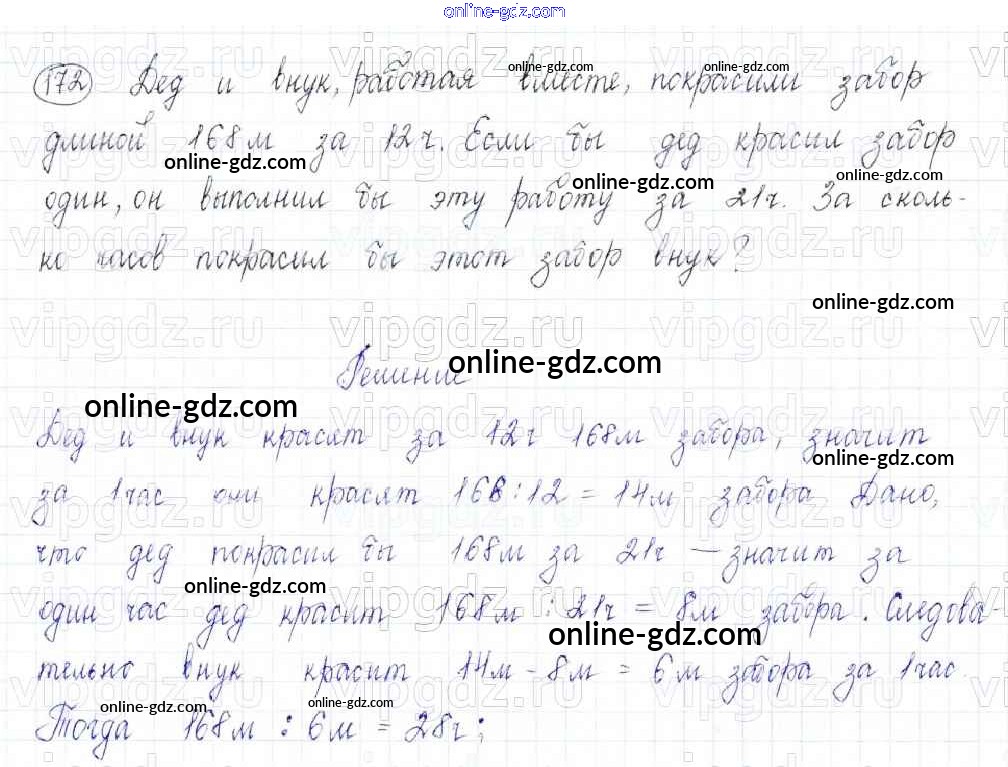 online-gdz.com
172 Дед и внук, работая вместе, покрасили забор
длиной 168м за 12ч. Если бы дед красил забор
один, он выполнил бы эту работу за 21ч. За сколь-
ко часов покрасил бы этот забор внук?
Решение
Дед и внук красят за 12ч 168м забора, значит
за 1час они красят 168:12 = 14м забора Дано,
что дед покрасил бы 168м за 21ч — значит за
один час дед красит 168м : 21ч = 8м забора. Следова
тельно внук красит 14м - 8м = 6м забора за 1час.
Тогда 168м : 6м = 28ч;
vipgdz.ru vipgdz.ru vipgdz.ru
online-gdz.com
online-gdz.com
online-gdz.com
online-gdz.com
online-gdz.com
online-gdz.com
online-gdz.com
online-gdz.com
online-gdz.com
online-gdz.com
online-gdz.com
online-gdz.com
online-gdz.com
online-gdz.com